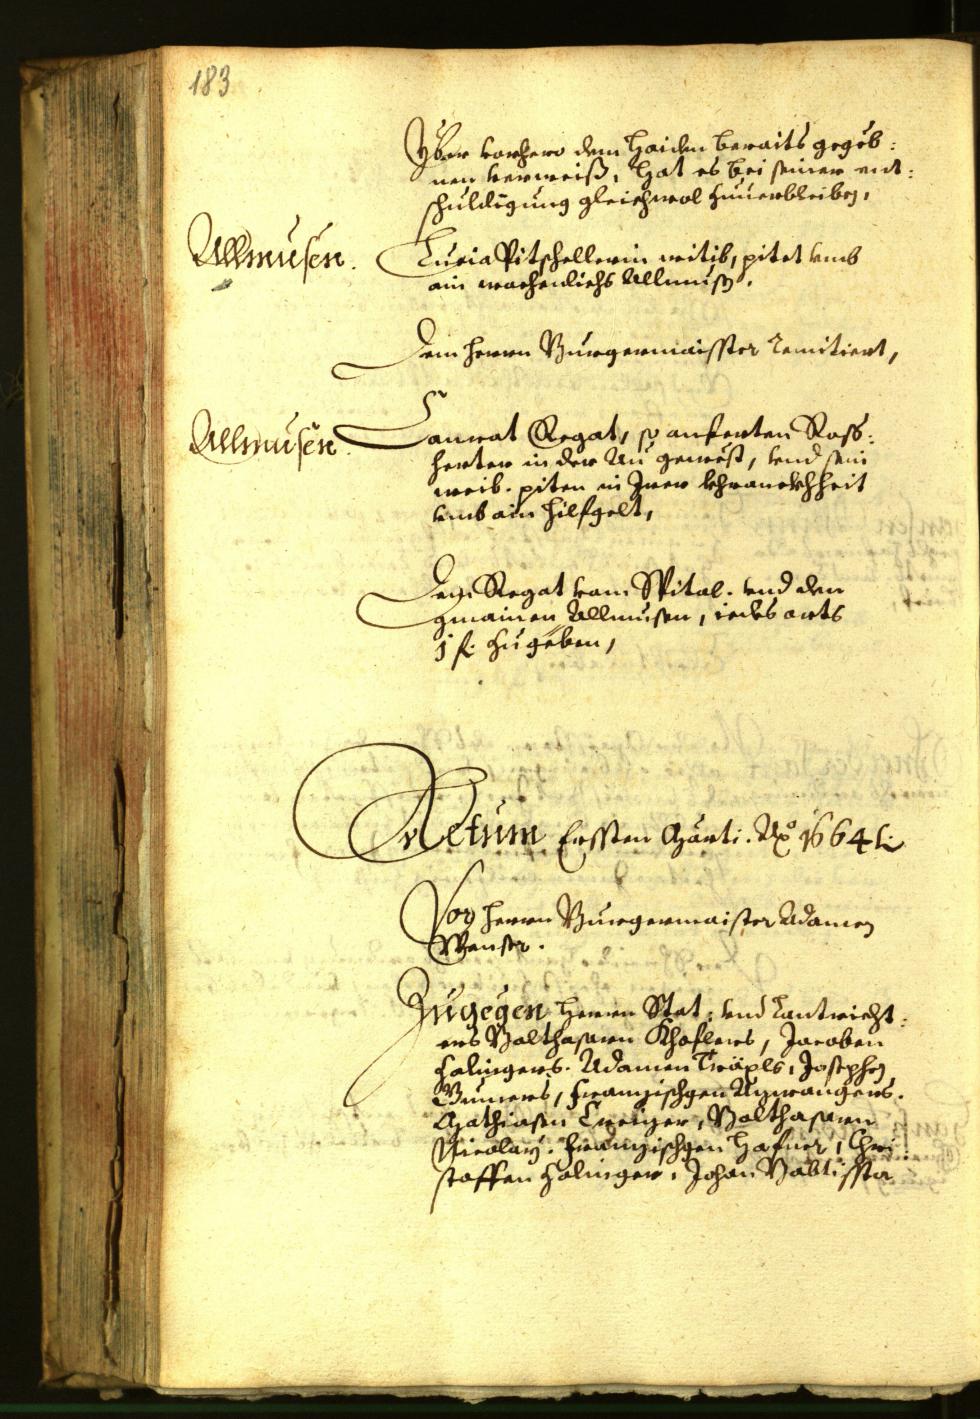 183
Yber vorhero dem Haiden beraits gegeb:
nen verweiß, hat es bei seiner ent:
schuldigung gleichwol zuuerbleiben,
Allmusen.
Lucia Pitschellerin witib, pitet vmb
ain wochenlichs Allmusen.
Dem herrn Burgermaisster remitiert,
Allmusen
Conrat Regat, so anferten Ross:
herter in der Au gewest, vnd sein
weib. piten in Irer khranckhheit
vmb ain hilfgelt,
Dem Regat vom Spital. vnd den
gmainen Allmusen, iedes orts
1 f. zugeben,
Actum Ersten Marti. Ao 1664
Vor herrn Burgermaister Adamen
Wenser.
Zugegen herrn Stat: vnd Lantricht:
ers Balthasarn Khoflers, Jacoben
Adamen Träpls, Josephen
Franzischgen
Mathiasen Creizer, Balthasarn
Nicolay. Franzischgen Hafner, Chri:
stoffen Johan Babtisster